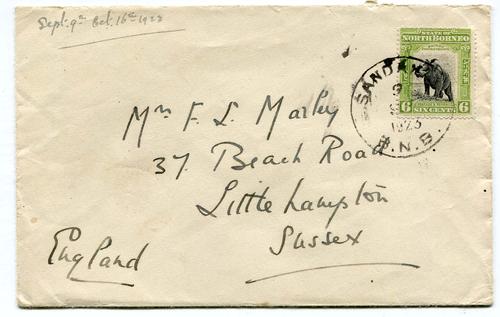 Sept. 9th Oct. 16th 1923
STATE OF
NORTH BORNEO
6 6
SIX CENTS
SANDAK
9
1923
B.N.B.
Mrs F. L. Marley
37 Beach Road
Littlehampton
Sussex
England